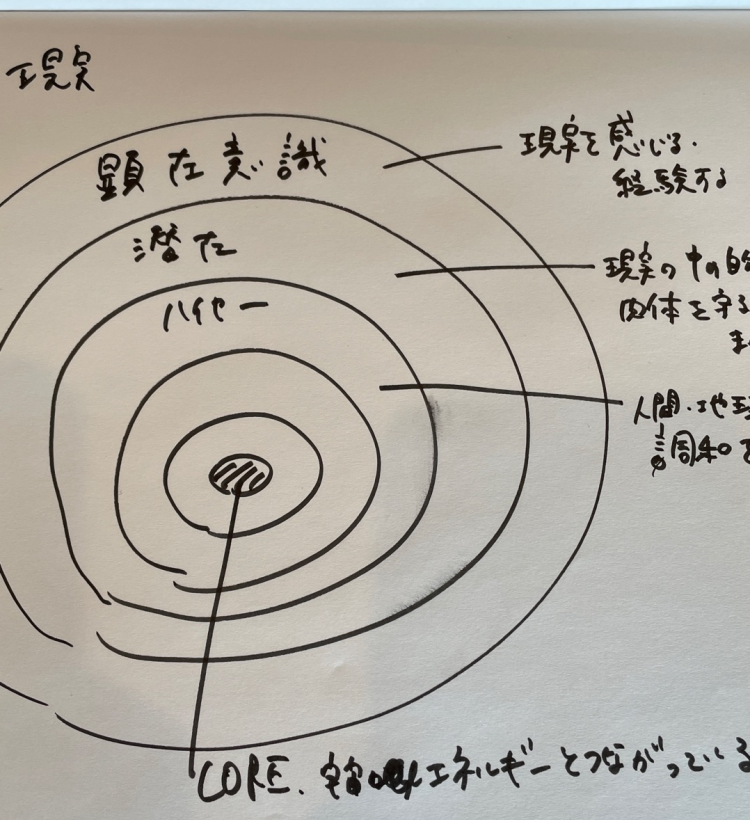 現実
顕在意識
潜在
ハイヤー
現実を感じる・
経験する
現実の中の自
肉体を守る
ま
人間・地球
調和を
CORE. 宇宙のエネルギーとつながっている